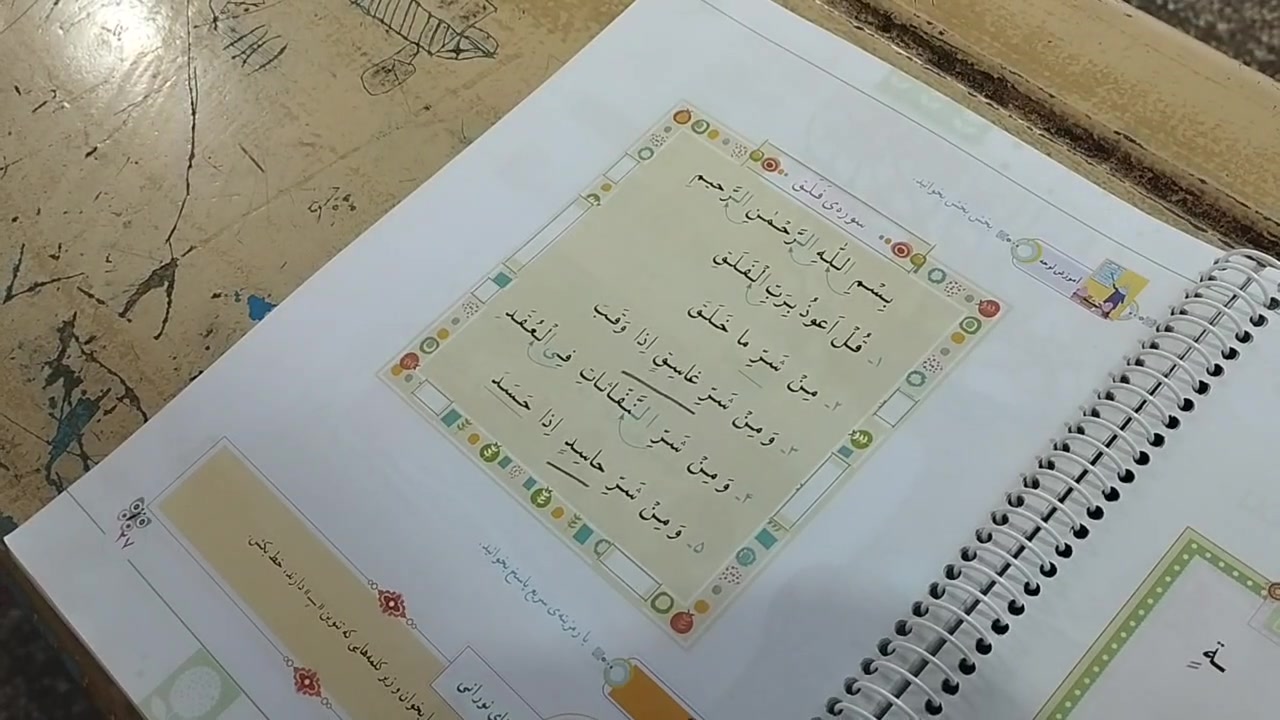 آموزش لوحه
بخش بخش بخوانید.
سوره‌ی فَلَق
بِسْمِ اللّٰهِ الرَّحْمٰنِ الرَّحیمِ
۱ـ قُلْ اَعوذُ بِرَبِّ الْفَلَقِ
۲ـ مِنْ شَرِّ ما خَلَقَ
۳ـ وَ مِنْ شَرِّ غاسِقٍ اِذا وَقَبَ
۴ـ وَ مِنْ شَرِّ النَّفّاثاتِ فِی الْعُقَدِ
۵ـ وَ مِنْ شَرِّ حاسِدٍ اِذا حَسَدَ
با رمزینه‌ی سریع پاسخ بخوانید.
نورانی
بخوان و زیر کلمه‌هایی که تنوین «ـٍ» دارند، خط بکش.
۲۷
ـةٍ